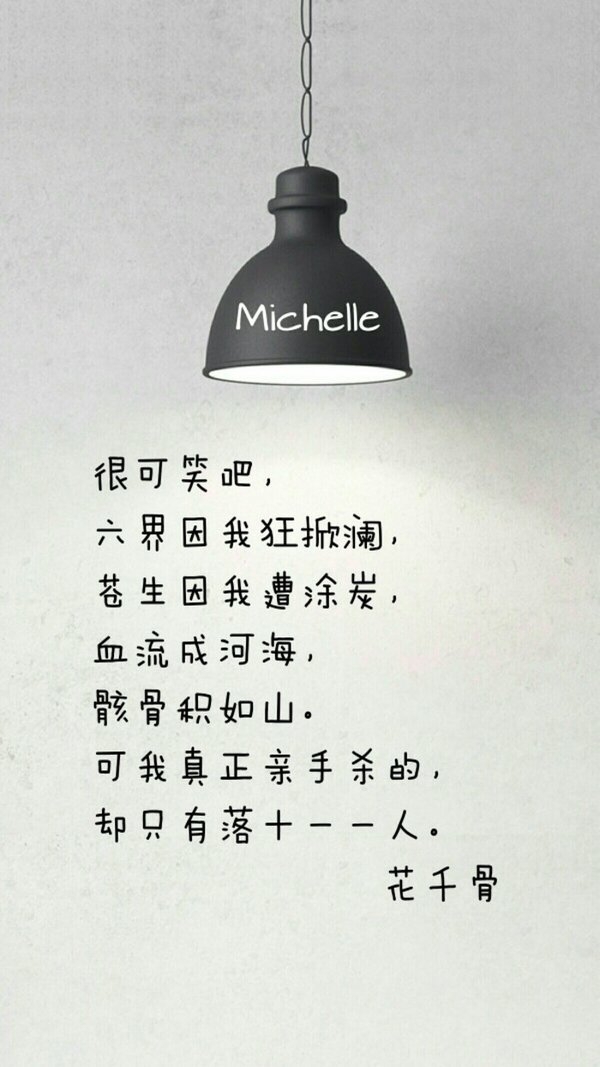 Michelle
很可笑吧，
六界因我狂掀澜，
苍生因我遭涂炭，
血流成河海，
骸骨积如山。
可我真正亲手杀的，
却只有落十一一人。
花千骨